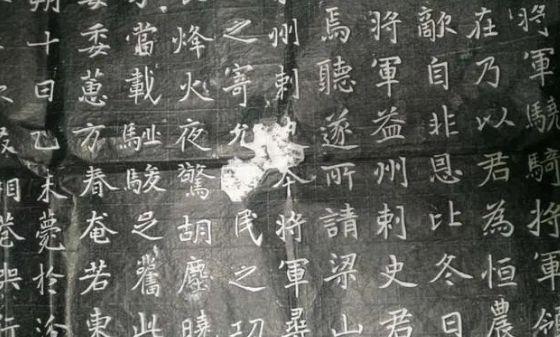 將軍驍騎將軍領
在乃以君為恒農
敵自非恩比冬日
將軍益州刺史君
焉聽遂所請梁山
州刺本將軍尋
之寄允民之
烽火夜驚胡塵曉
當載馳駿足此
委蕙方春奄若東
十日乙未薨於
相